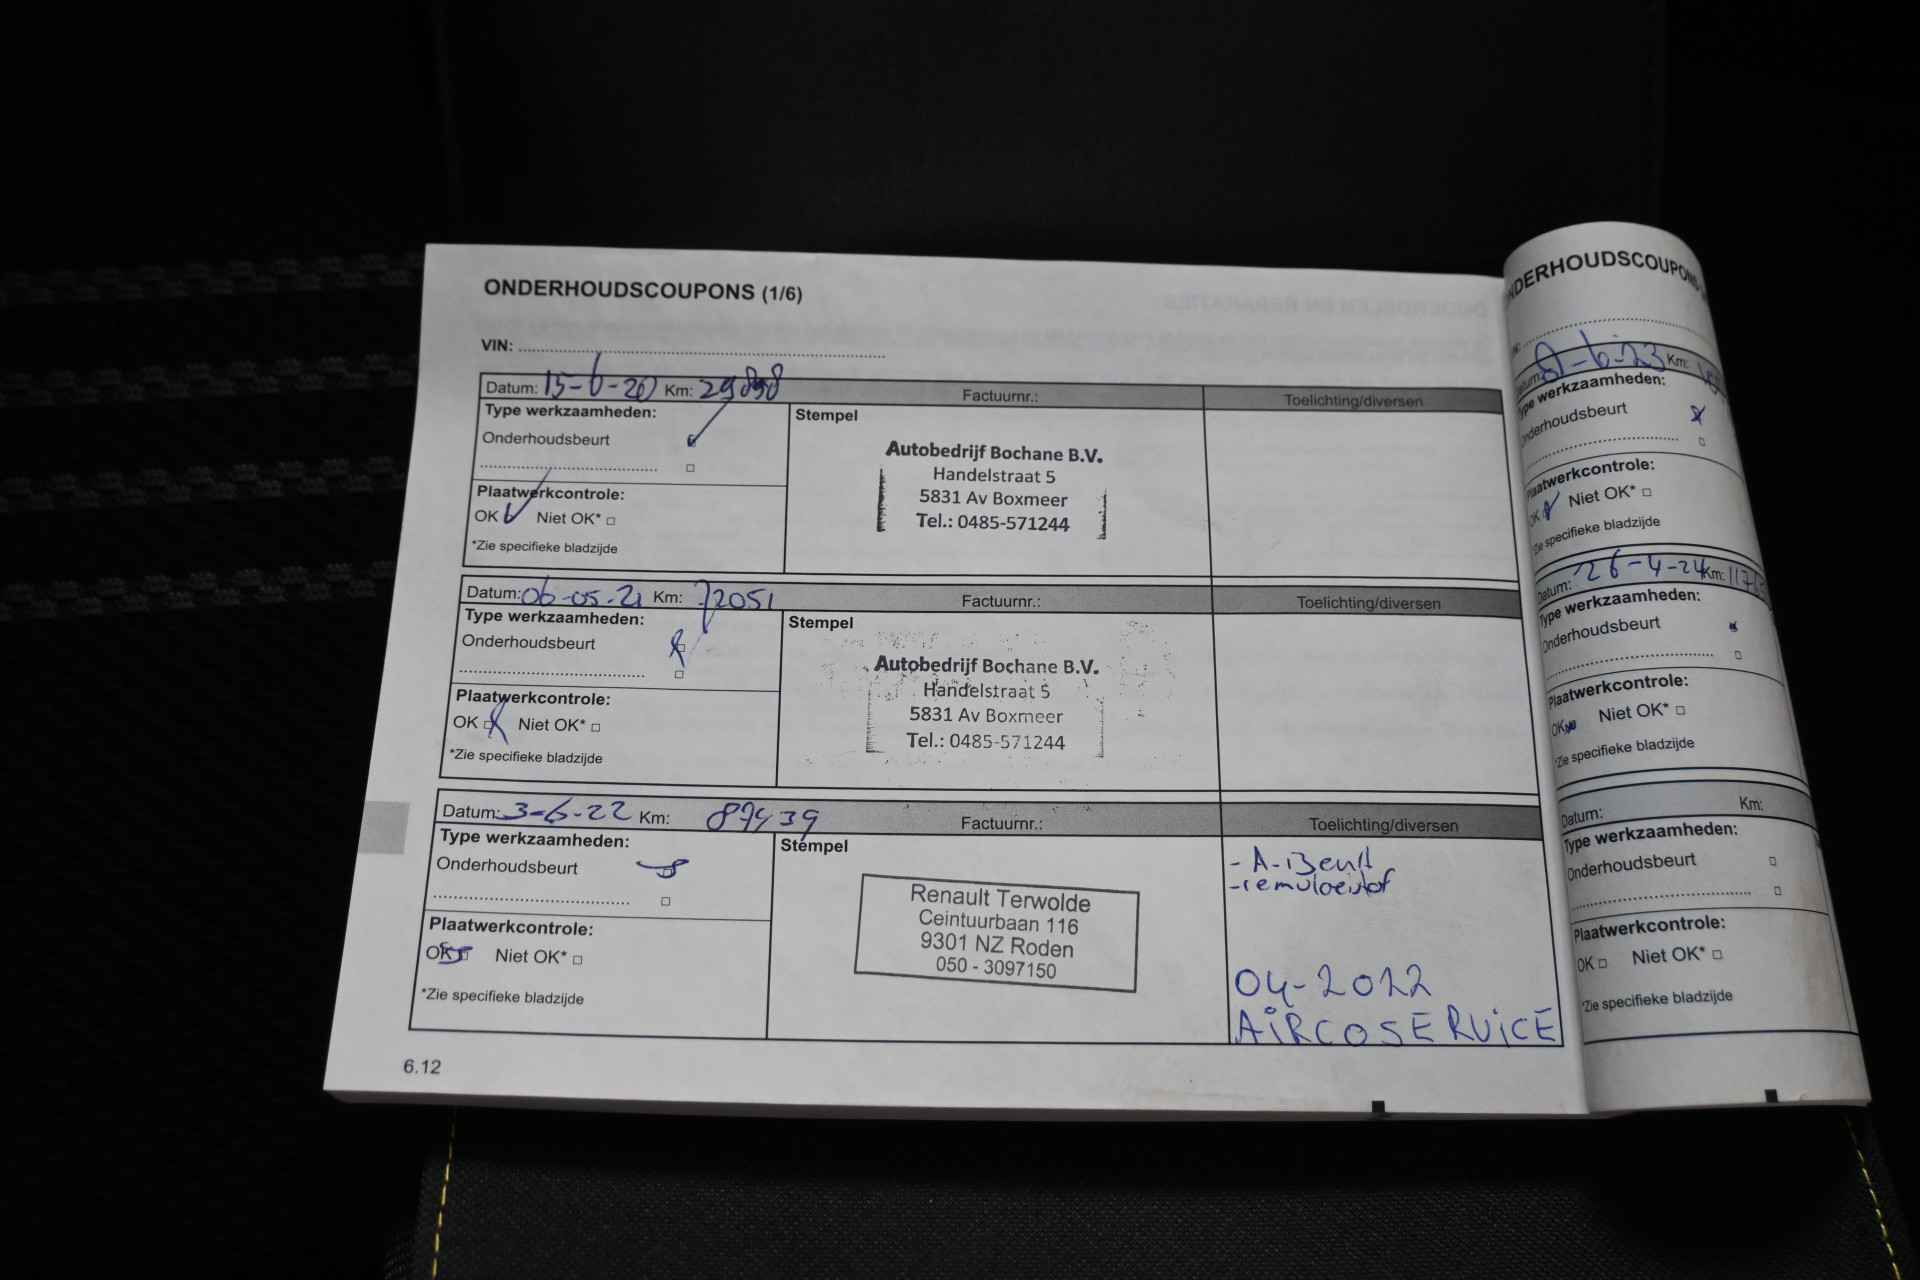 ONDERHOUDSCOUPONS (1/6)
VIN:
Datum: 15-6-20 Km: Factuurnr.: Toelichting/diversen
Type werkzaamheden:
Stempel
Onderhoudsbeurt
Autobedrijf Bochane B.V.
Handelstraat 5
5831 Av Boxmeer
Tel.: 0485-571244
Plaatwerkcontrole:
OK Niet OK*
*Zie specifieke bladzijde
Datum: 06-05-21 Km: 72051 Factuurnr.: Toelichting/diversen
Type werkzaamheden:
Stempel
Onderhoudsbeurt
Autobedrijf Bochane B.V.
Handelstraat 5
5831 Av Boxmeer
Tel.: 0485-571244
Plaatwerkcontrole:
OK Niet OK*
*Zie specifieke bladzijde
Datum: 3-6-22 Km: 87439 Factuurnr.: Toelichting/diversen
Type werkzaamheden:
Stempel
Onderhoudsbeurt
Renault Terwolde
Ceintuurbaan 116
9301 NZ Roden
050 - 3097150
- A-Beurt
Plaatwerkcontrole:
OK Niet OK*
*Zie specifieke bladzijde
04-2022
AIRCOSERVICE
6.12
ONDERHOUDSCOUPONS
Datum: 8-6-23 Km:
Type werkzaamheden:
Onderhoudsbeurt
Plaatwerkcontrole:
OK Niet OK*
*Zie specifieke bladzijde
Datum: 26-4-24 Km:
Type werkzaamheden:
Onderhoudsbeurt
Plaatwerkcontrole:
OK Niet OK*
*Zie specifieke bladzijde
Datum: Km:
Type werkzaamheden:
Onderhoudsbeurt
Plaatwerkcontrole:
OK Niet OK*
*Zie specifieke bladzijde